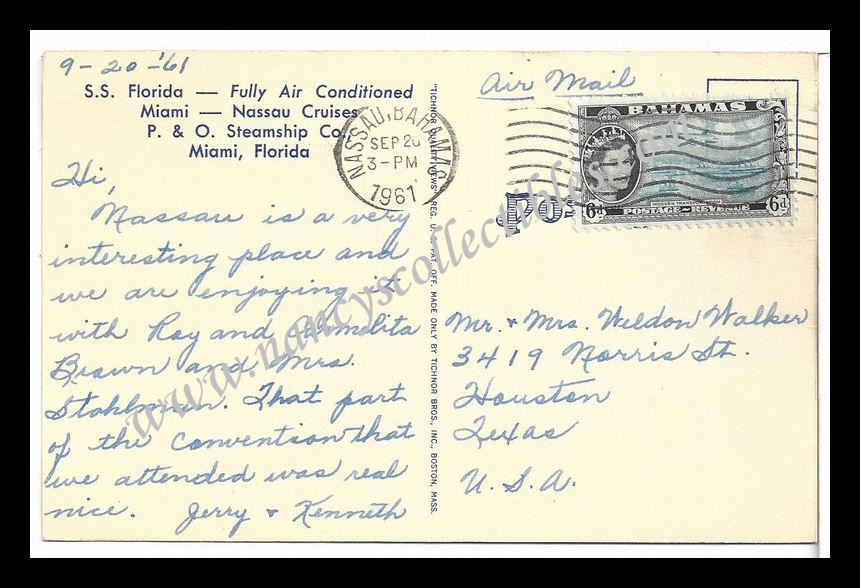 9-20-'61
S.S. Florida — Fully Air Conditioned
Miami — Nassau Cruises
P. & O. Steamship Co.
Miami, Florida
Hi,
Nassau is a very
interesting place and
we are enjoying it
with Roy and
Brown and Mrs.
Stohlman. That part
of the convention that
we attended was real
nice. Jerry & Kenneth
"TICHNOR QUALITY VIEWS" REG. U. S. PAT. OFF. MADE ONLY BY TICHNOR BROS., INC., BOSTON, MASS.
Air Mail
NASSAU, BAHAMAS
SEP 20
3-PM
1961
BAHAMAS
6d POSTAGE REVENUE 6d
Pos
Mr. & Mrs. Weldon Walker
3419 Norris St.
Houston
Texas
U.S.A.
www.nancyscollectibles